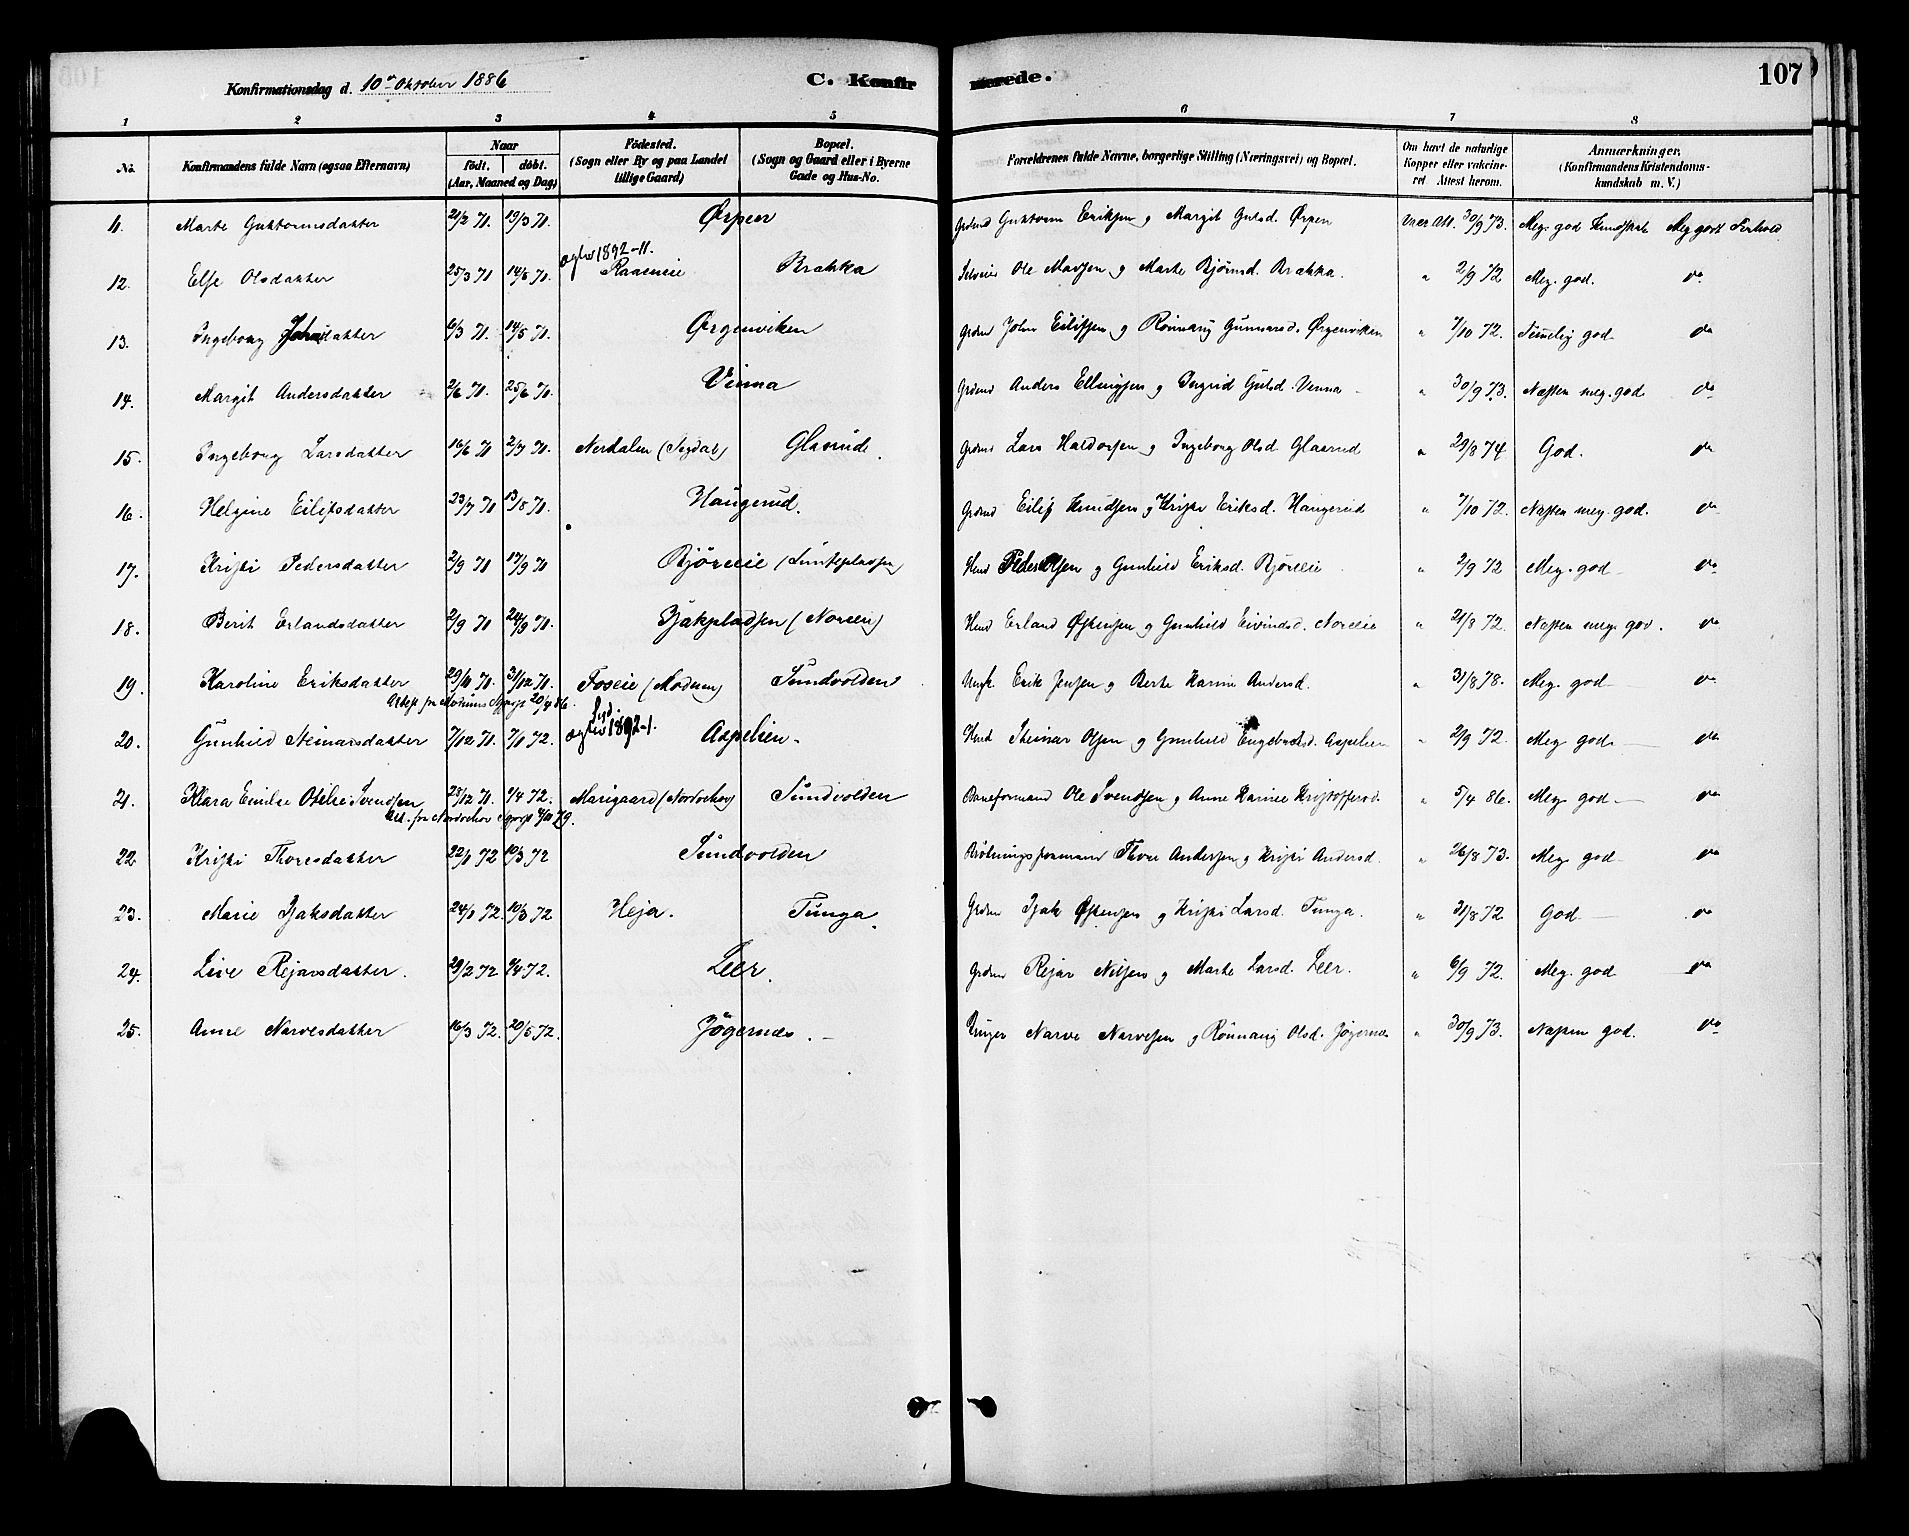 Konfirmationsdag d. 10de Oktober 1886 C. Konfirmerede. 107
1 2 3 4 5 6 7 8
No. Konfirmandens fulde Navn (ogsaa Efternavn) Naar födt. döbt. (Aar, Maaned og Dag) Födested. (Sogn eller By og paa Landet tillige Gaard) Bopæl. (Sogn og Gaard eller i Byerne Gade og Hus-No. Forældrenes fulde Navne, borgerlige Stilling (Næringsvei) og Bopæl. Om havt de naturlige Kopper eller vakcineret. Attest herom. Anmærkninger. (Konfirmandens Kristendomskundskab m. V.)
11. Marte Guttormsdatter 21/2 71. 19/3 71. Ørpen Grdmd Guttorm Eriksen og Margit Gulsd. Ørpen Vacc. Att. 30/9 73. Meg. god Kundskab Meg. godt Forhold.
12. Else Olsdatter 25/3 71 14/5 71. Raaeneie Brækka Selveier Ole Madsen og Marte Bjørnsd. Brækka. " 2/9 72 Meg. god. do
13. Ingeborg Johnsdatter 6/3 71. 14/5 71. Ørgenviken Grdmd John Eilifsen og Rønnaug Gunnarsd. Ørgenviken " 7/10 72. Temelig god do
14. Margit Andersdatter 2/6 71. 25/6 71. Vinna Grdmd Anders Ellingsen og Ingrid Gulsd. Vinna " 30/9 73. Næsten meg. god do
15. Ingeborg Larsdatter 16/6 71 2/7 71. Nerdalen (Sigdal) Glasrud. Grdmd Lars Haldorsen og Ingeborg Olsd. Glaarud " 29/8 74. God. do
16. Helgine Eilifsdatter 23/7 71 13/8 71. Haugerud. Grdmd Eilif Knudsen og Kristi Eriksd. Haugerud " 7/10 72. Næsten meg. god. do
17. Kristi Pedersdatter 2/9 71 17/9 71 Bjøreeie Hmd Peder Olsen og Gunhild Eriksd. Bjøreeie " 2/9 72 Meg. god do
18. Berit Erlandsdatter 2/9 71 24/9 71. Isakpladsen (Noreeie) Hmd Erland Østensen og Gunhild Eivindsd. Noreeie " 21/8 72. Næsten meg. god. do
19. Karoline Eriksdatter 29/10 71. 31/12 71. Foseie (Modum) Sundvolden Ungk. Erik Jensen og Berte Karine Andersd. " 31/8 78. Meg. god do
Attest fr. Modums Sprgst 20/4 86.
20. Gunhild Steinarsdatter 7/12 71. 7/1 72. Aspelien. Hmd Steinar Olsen og Gunhild Engebretsd. Aspelien " 2/9 72. Meg. god. do
21. Klara Emilie Otilie Svendsen 28/12 71. 1/4 72. Marigaard (Norderhov) Sundvolden Baneformand Ole Svendsen og Anne Karine Kristoffersd. " 5/4 86. Meg. god do
Att. fr. Norderhov Sprgst
22. Kristi Thoresdatter 22/1 72 10/3 72 Sundvolden Thore Andersen og Kristi Andersd. " 26/8 73. Meg. god do
23. Marie Isaksdatter 24/1 72. 10/3 72 Heja. Tunga. Grdmd Isak Østensen og Kristi Larsd. Tunga. " 31/8 72 God do
24. Live Rejarsdatter. 29/2 72 1/4 72. Leer. Grdmd Rejar Nilsen og Marte Larsd. Leer. " 6/9 72. Meg. god do
25. Anne Narvesdatter 16/3 72. 20/5 72. Jøgernes. Narve Narvesen og Rønnaug Olsd. Jøgernes " 30/9 73. Næsten god. do